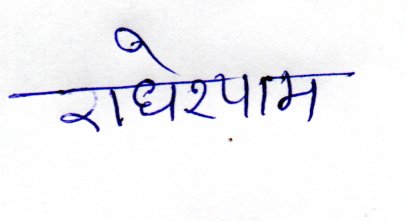 राधेश्याम